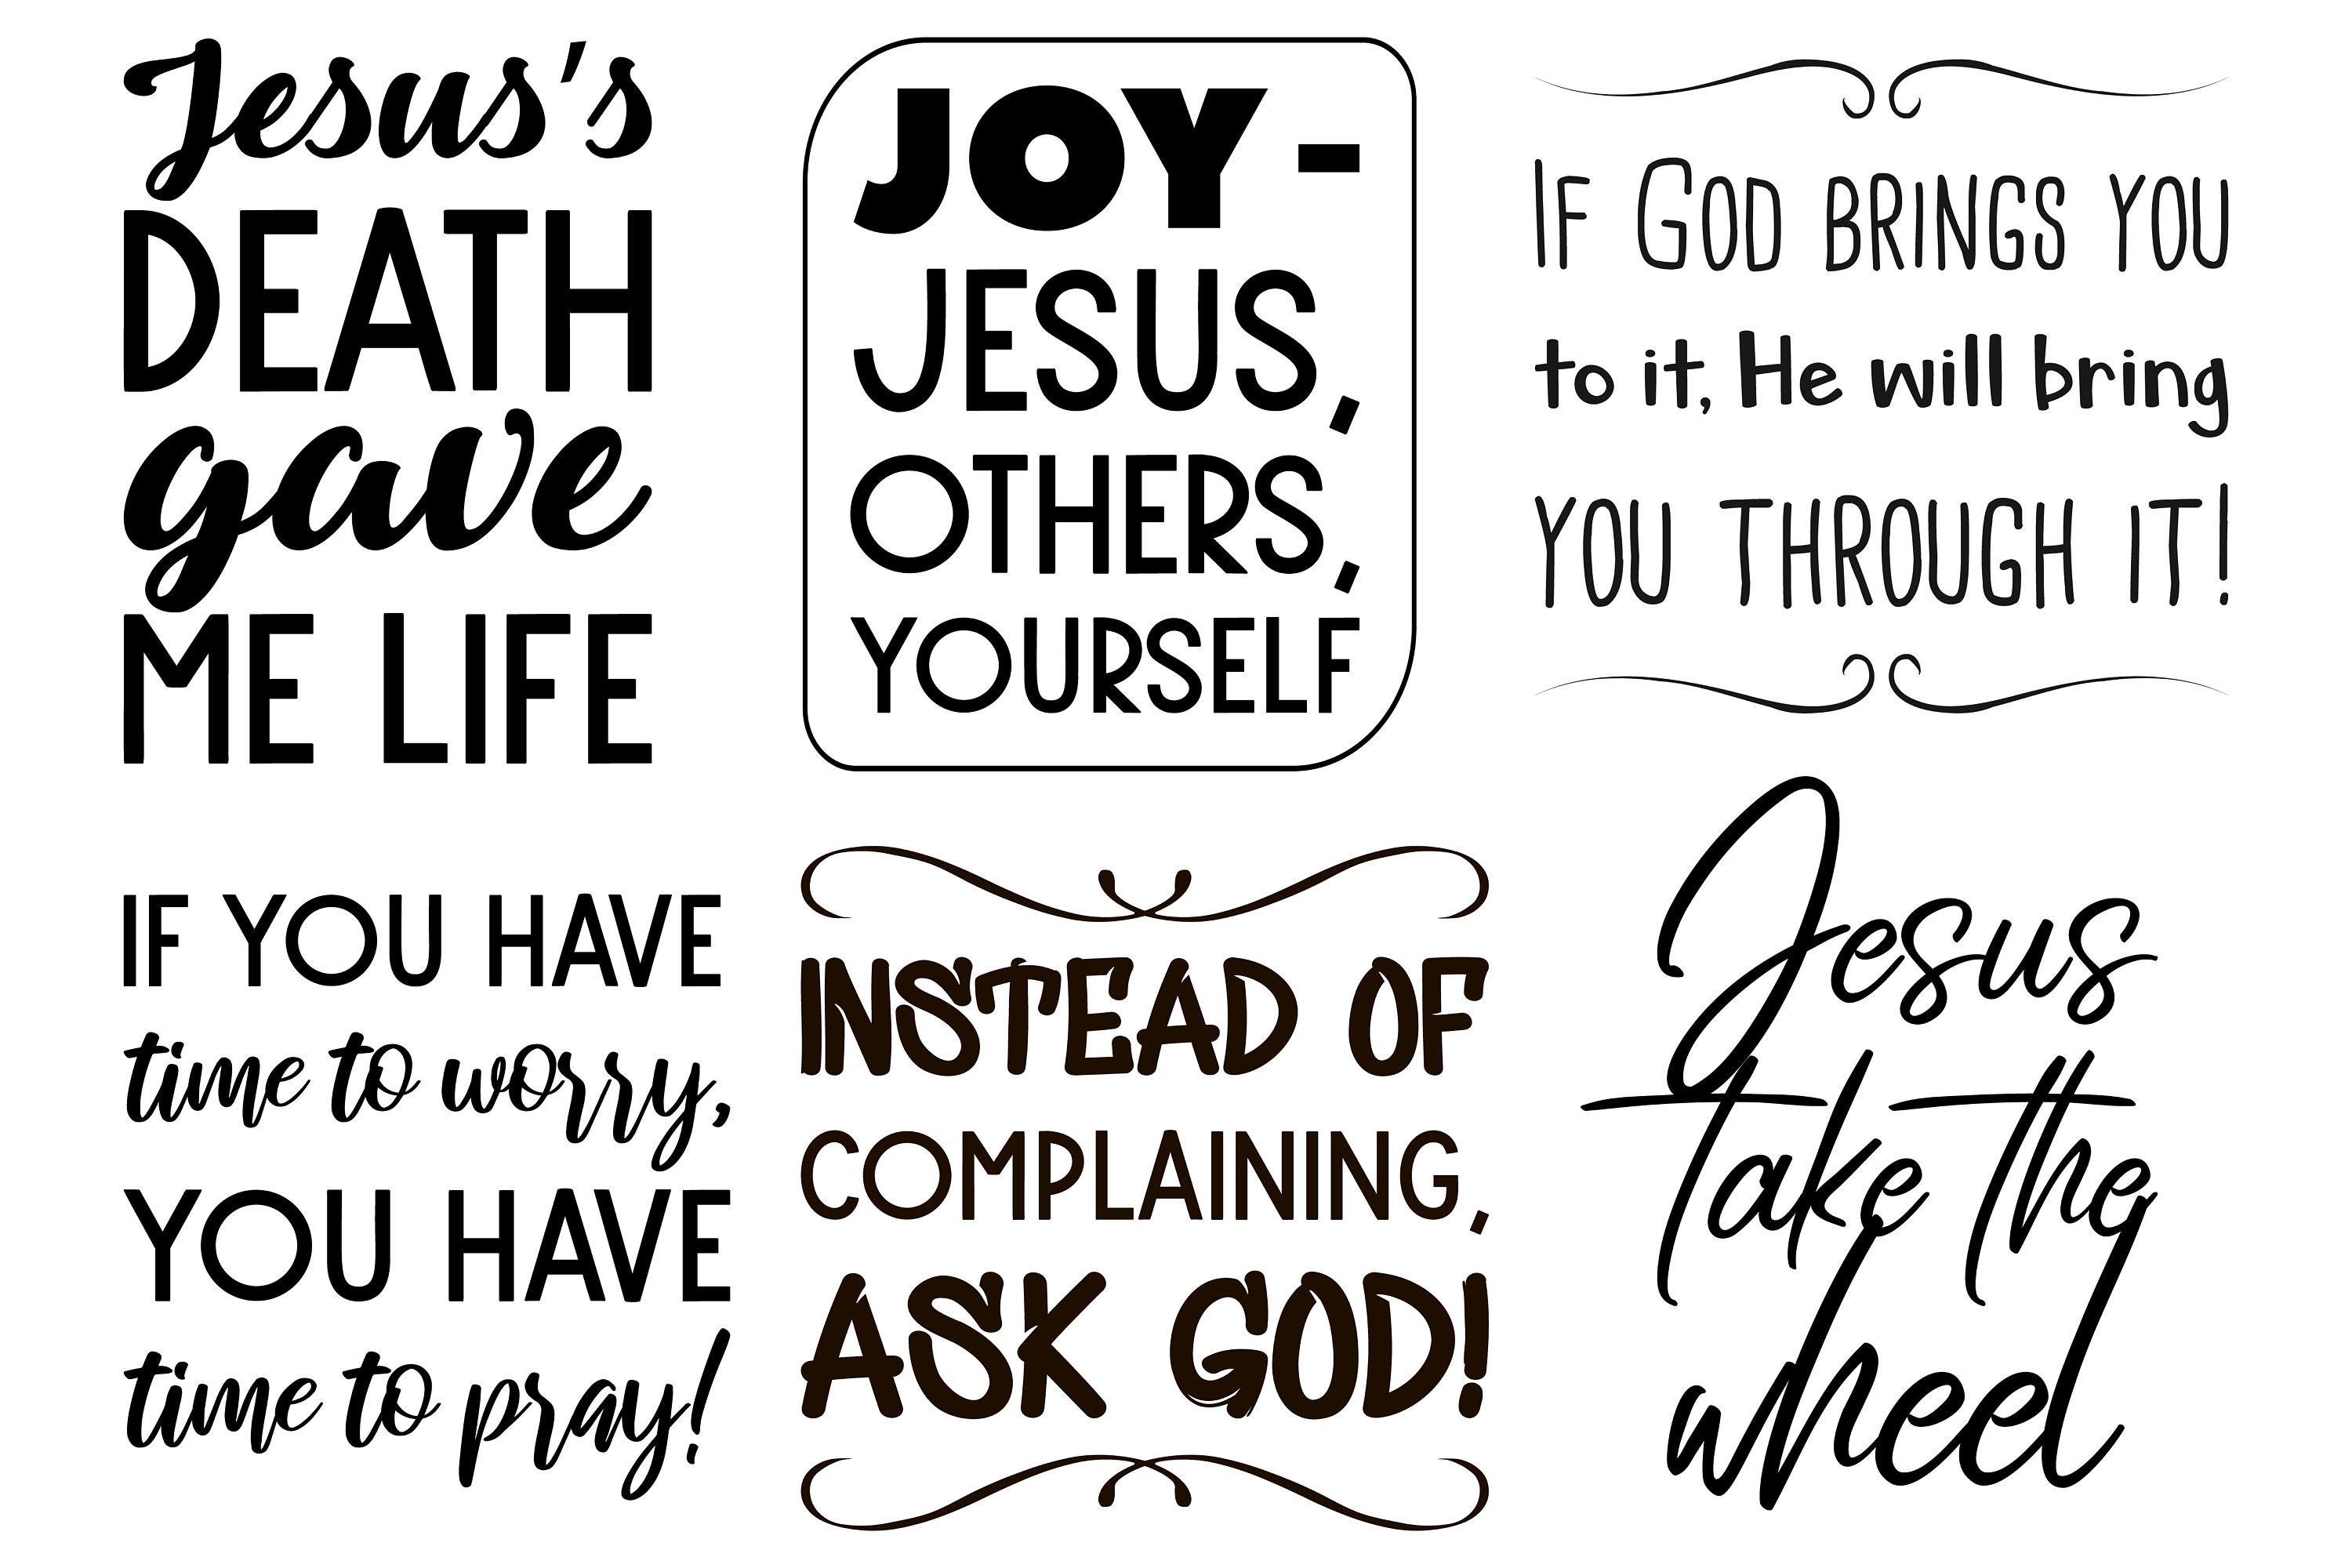 Jesus's
DEATH
gave
ME LIFE
JOY -
JESUS,
OTHERS,
YOURSELF
IF GOD BRINGS YOU
to it, He will bring
YOU THROUGH IT!
IF YOU HAVE
time to worry,
YOU HAVE
time to pray!
INSTEAD OF
COMPLAINING,
ASK GOD!
Jesus
take the
wheel